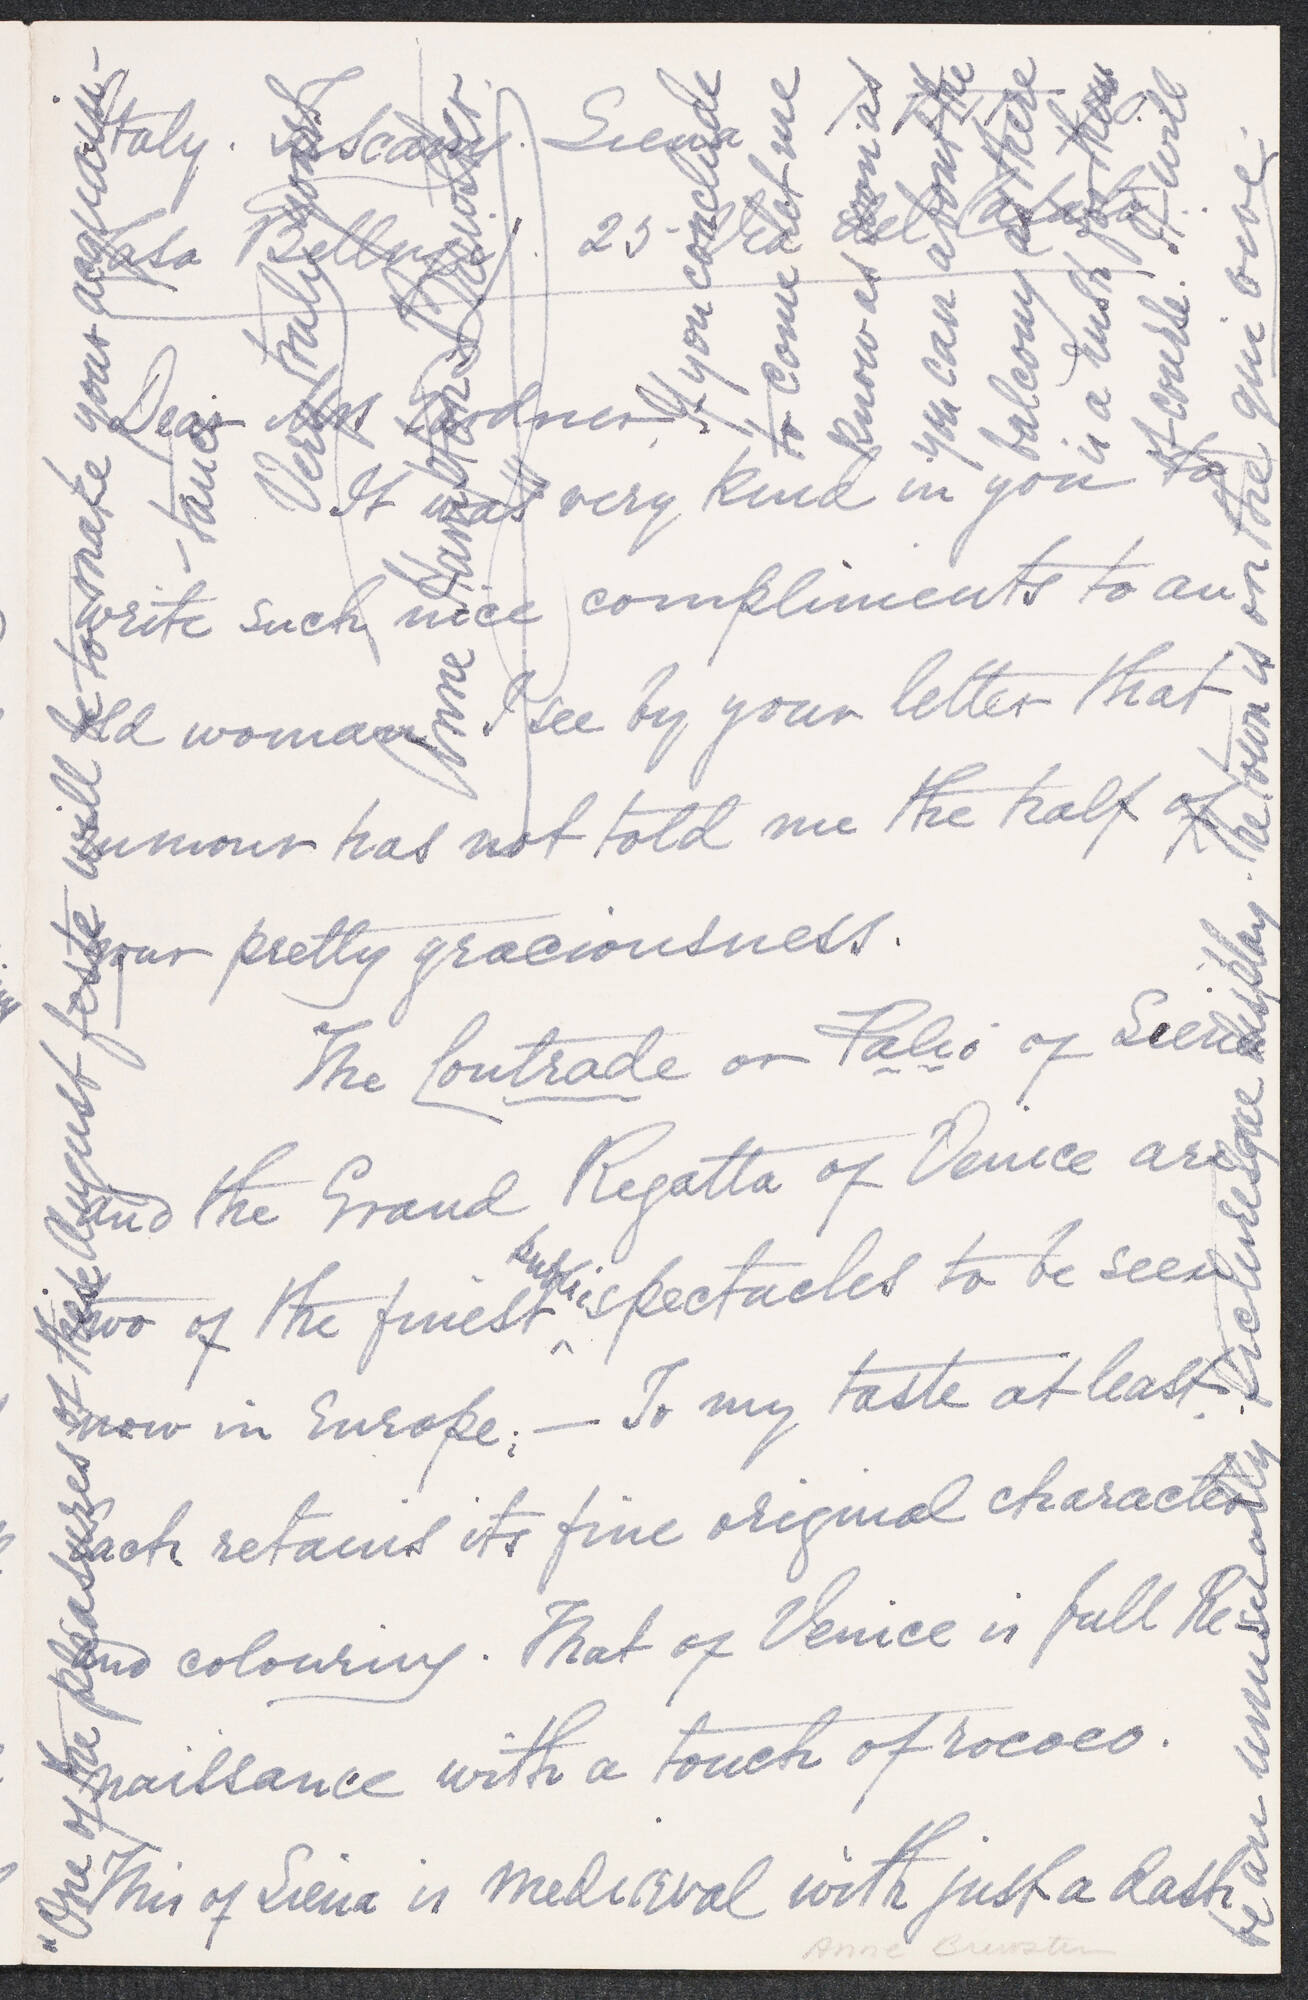 Italy. Toscany. Siena
Casa Bellugi. 25- Via del
Dear Mrs Gardner,
It was very kind in you to
write such nice compliments to an
old woman. I see by your letter that
rumour has not told me the half of
your pretty graciousness.
The Contrade or Palio of Siena
and the Grand Regatta of Venice are
two of the finest public spectacles to be seen
now in Europe; — To my taste at least.
Each retains its fine original character
and colouring. That of Venice is full Re
naissance with a touch of rococo.
This of Siena is mediæval with just a dash
be an unusually picturesque display. The town is on the qui vive.
If you conclude
to come let me
know as soon as
you can about the
balcony as there
is a rush for them
of course. It will
"One of the pleasures of these August feste will be to make your acquain-
-tance
Very truly yours
Anne Hampton Brewster.
Anne Brewster